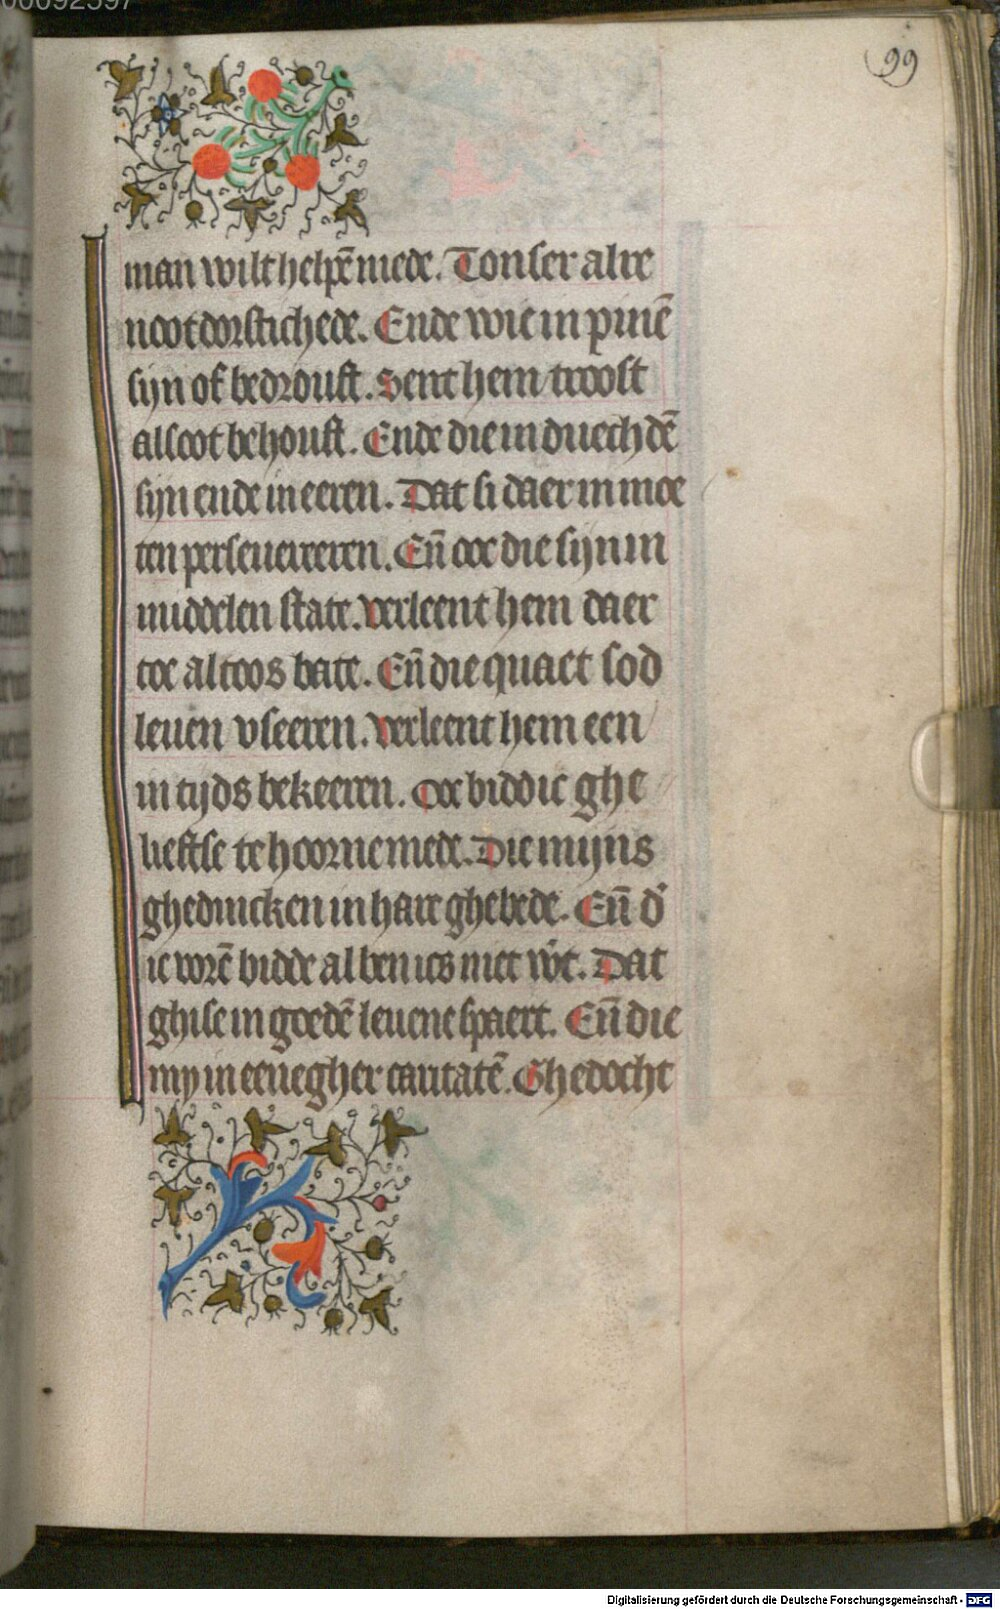 99
man wilt helpē mede. Tonser alre
nootdorstichede. Ende wie in pinē
sijn of bedrouft. Sent hem troost
alsoot behouft. Ende die in duechdē
sijn ende in eeren. Dat si daer in moe
ten perseuereren. Eñ ooc die sijn in
middelen state. Verleent hem daer
toe altoos bate. Eñ die quaet sod
leuen vseeren. Verleent hem een
in tijds bekeeren. Ooc biddic ghe
lieftse te hoorne mede. Die mijns
ghedincken in hare ghebede. Eñ d'
ic vorē bidde al ben ics niet wt. Dat
ghise in goedē leuene spaert. Eñ die
my in eenegher caritatē. Ghedocht
Digitalisierung gefördert durch die Deutsche Forschungsgemeinschaft - DFG